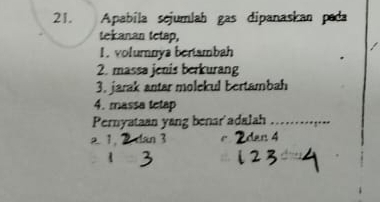 21. Apabila sejumlah gas dipanaskan pada
tekanan tetap,
1. volumnya bertambah
2. massa jenis berkurang
3. jarak antar molekul bertambah
4. massa tetap
Pernyataan yang benar adalah ............
a. 1, 2 dan 3 c. 2 dan 4
1 3 1 2 3 4